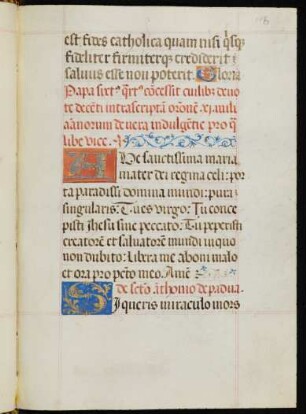 est fides catholica quam nisi q̄sq̄
fideliter firmiterq̄ crediderit
saluus esse non poterit. Gloria
Papa sixt9 q̄rt9 cōcessit cuilib; deuo
te dicēti infrascriptā oronē xj. mili
a ānorum de uera indulgētie pro q̄
libe vice.
AVe sanctissima maria
mater dei regina celi: por
ta paradisi domina mundi: pura
singularis: Tu es virgo: Tu conce
pisti Jhesū sine peccato: Tu peperisti
creatorē et saluatorē mundi in quo
non dubito: Libera me ab om̄i malo
et ora pro pctō meo. Amē
De scto āthonio de padua.
SI queris miracula mors